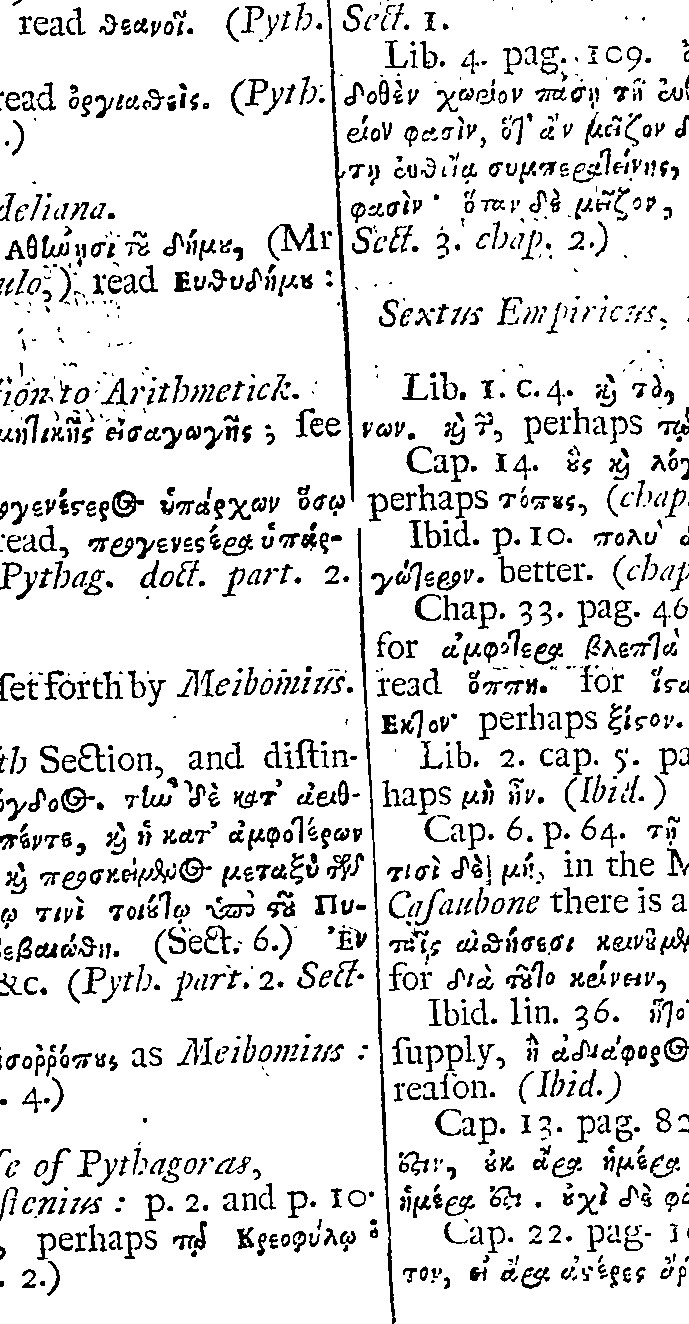 read θεανοῖ. (Pyth.
read ὀργιαθεὶς. (Pyth.
.)
deliana.
Αθήνησι τοῦ δήμου, (Mr
ulo,) read Ευθυδήμου :
ion to Arithmetick.
μητικῆς εἰσαγωγῆς ; ſee
ὑπάρχων ὅσῳ
read, προγενεστέρα ὑπάρ-
Pythag. doct. part. 2.
ſet forth by Meibomius.
th Section, and diſtin-
τὴν δὲ κατ' ἀριθ-
πέντε, καὶ ἡ κατ' ἀμφοτέρων
καὶ προσκείμενος μεταξὺ τῶν
τινὶ τοιούτῳ ὑπὸ τοῦ Πυ-
εβαιώθη. (Sect. 6.) Ἐν
&c. (Pyth. part. 2. Sect.
ἰσορρόπους as Meibomius :
. 4.)
ſe of Pythagoras,
ſtenius : p. 2. and p. 10.
, perhaps τῷ Κρεοφύλῳ ὁ
. 2.)
Sect. 1.
Lib. 4. pag. 109.
δοθὲν χωρίον πάσῃ τῇ εὐθ
είον φασὶν, ὅτ' ἀν μεῖζον δ
τῃ εὐθείᾳ συμπερατείνης,
φασὶν· ὅταν δὲ μεῖζον,
Sect. 3. chap. 2.)
Sextus Empiricus,
Lib. 1. c. 4. καὶ τὸ,
νων. καὶ τ, perhaps
Cap. 14. οὓς καὶ λόγ
perhaps τόπους, (chap.
Ibid. p. 10. πολυ
γώτερον. better. (chap
Chap. 33. pag. 46
for ἀμφότερα βλεπτὰ
read ὅππη. for ἵστα
Εκτον· perhaps ξίστον.
Lib. 2. cap. 5. pa
haps μὴ ἦν. (Ibid.)
Cap. 6. p. 64. τῇ
τισὶ δὲ μή, in the M
Caſaubone there is a
ταῖς αἰσθήσεσι κεινουμεν
for διὰ τοῦτο κείνειν,
Ibid. lin. 36. ἤτο
ſupply, ἢ ἀδιάφορος
reaſon. (Ibid.)
Cap. 13. pag. 82
ἔστιν, οὐκ ἄρα ἡμέρα
ἡμέρα ἔστι. οὐχὶ δὲ φῶ
Cap. 22. pag. 10
τον, οἱ ἄρα ἀστέρες ἄρ